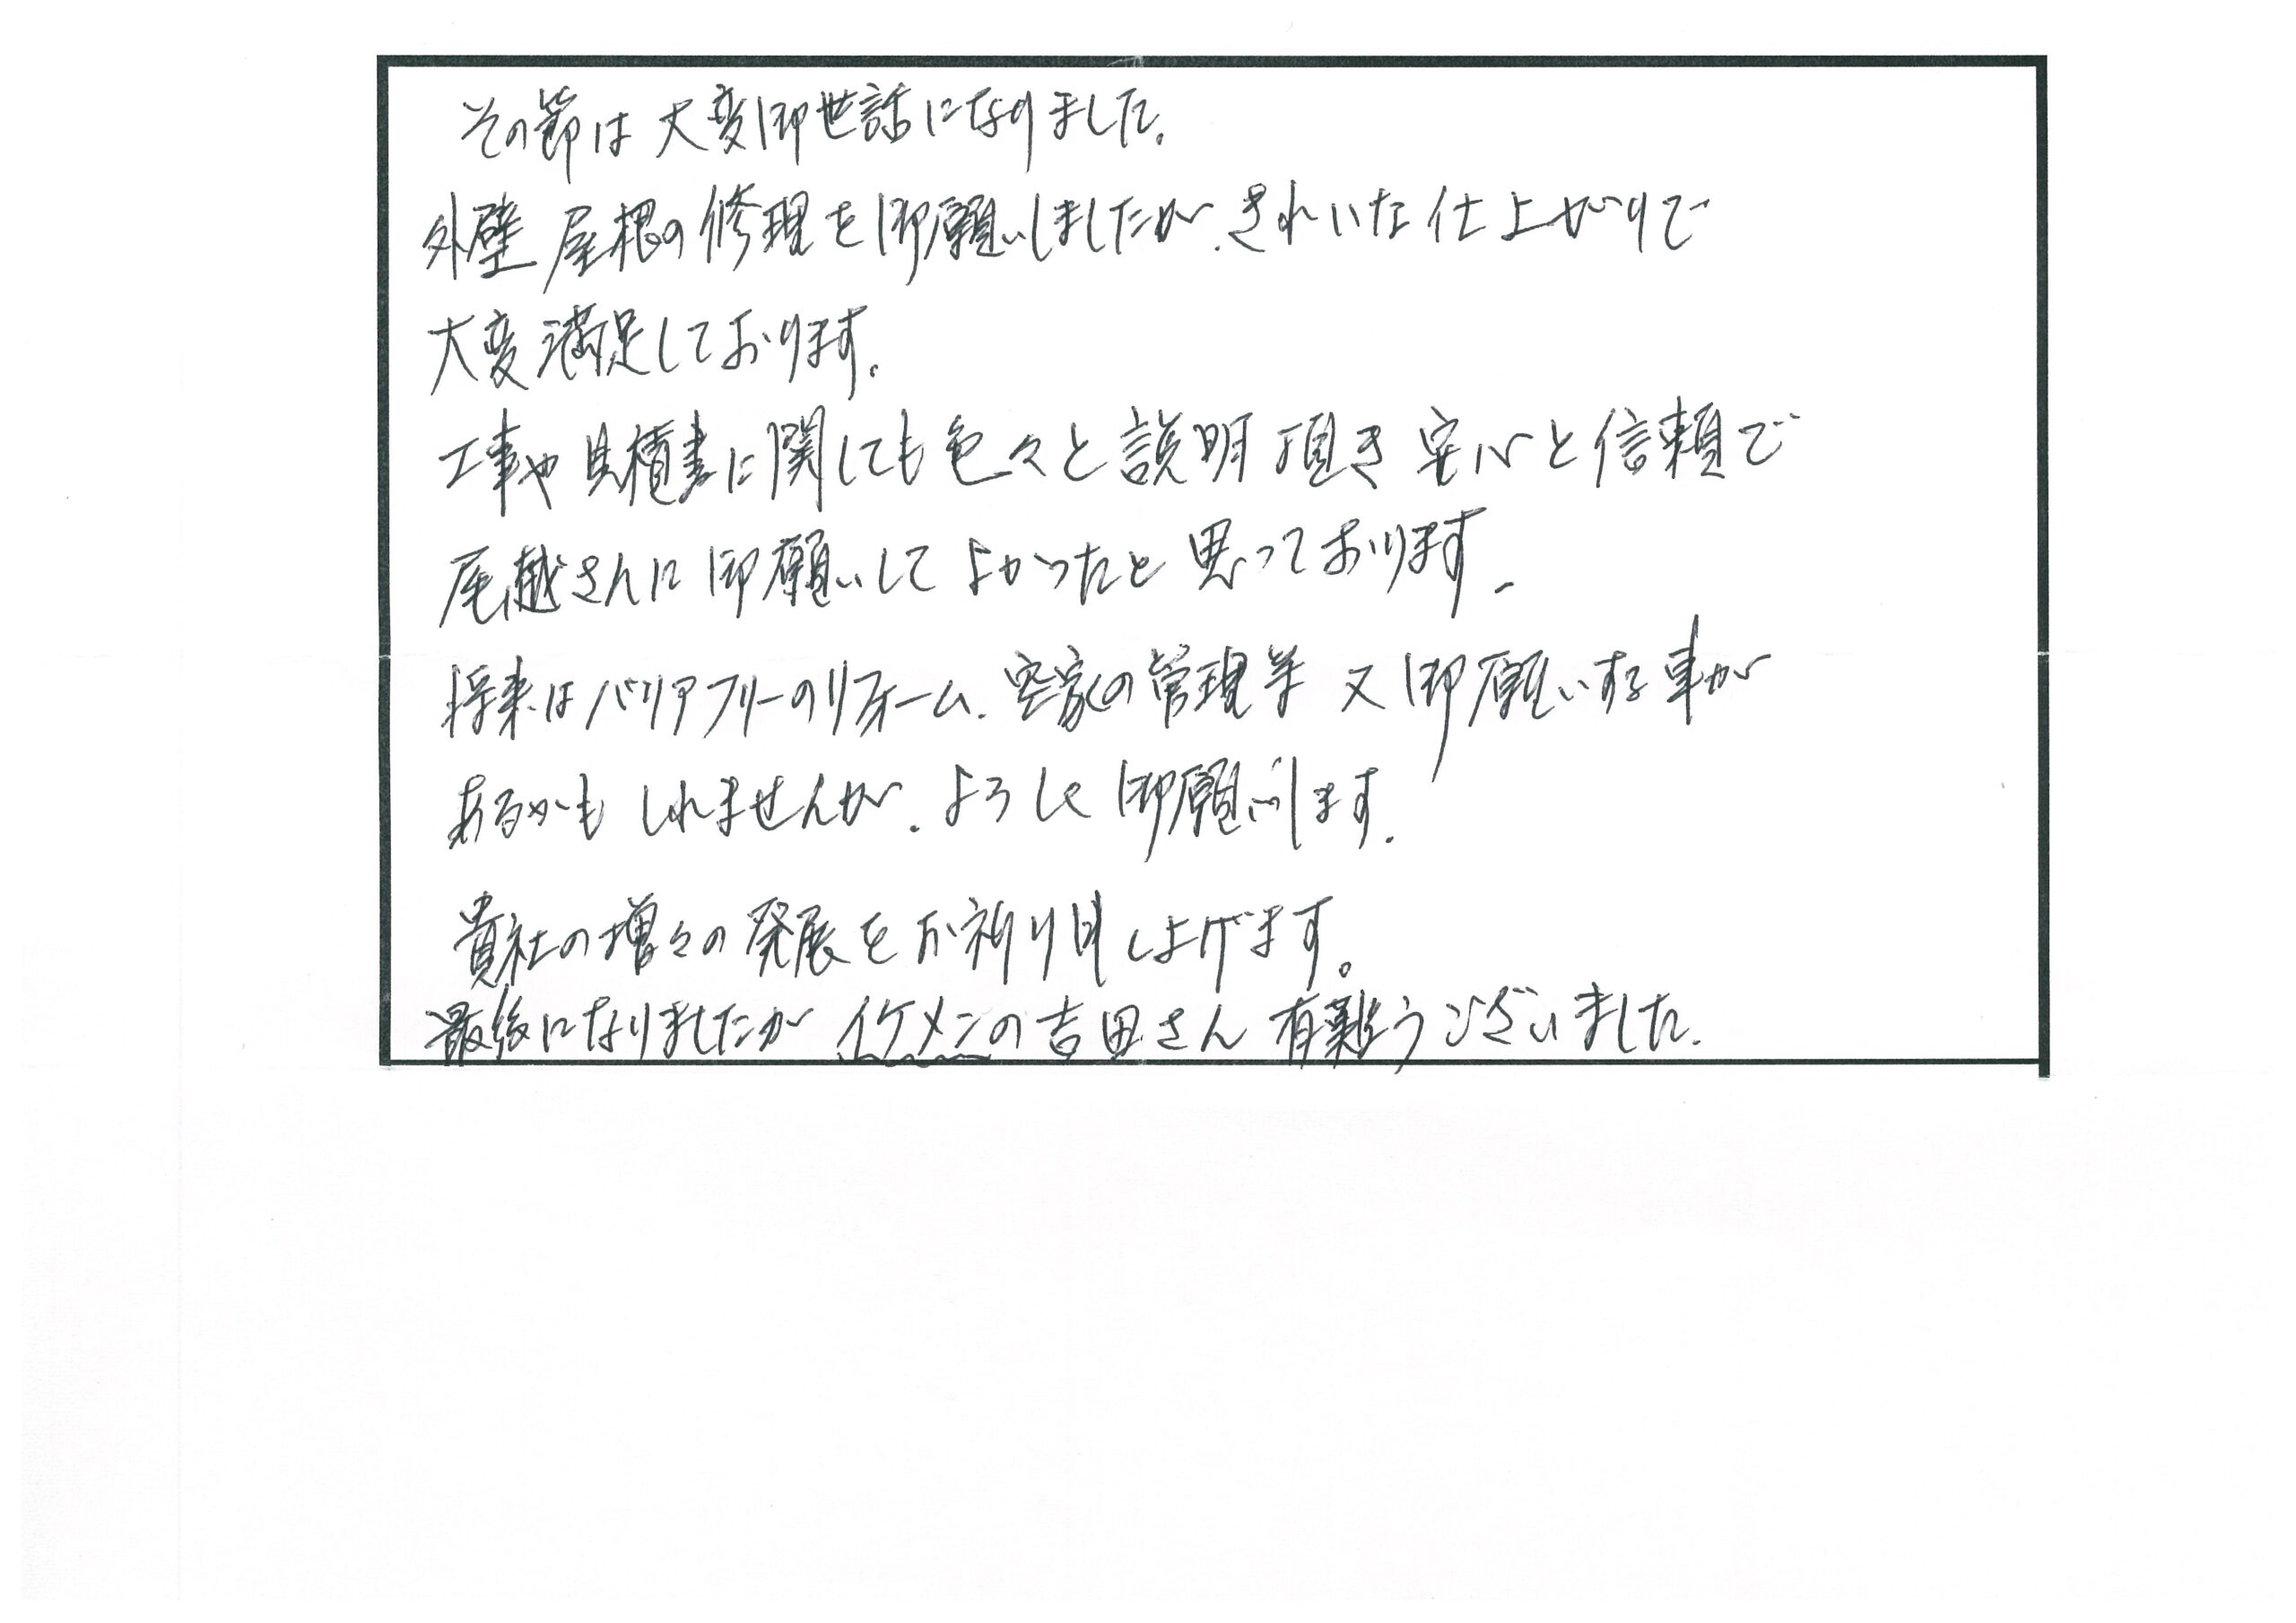 その節は大変御世話になりました。
外壁 屋根の修理を御願いしましたが、きれいな仕上がりで
大変満足しております。
工事や見積書に関しても色々と説明頂き安心と信頼で
尾越さんに御願いしてよかったと思っております。
将来はバリアフリーのリフォーム、空家の管理等 又御願いする事が
あるかもしれませんが、よろしく御願いします。
貴社の増々の発展をお祈り申し上げます。
最後になりましたが イケメンの吉田さん 有難うございました。